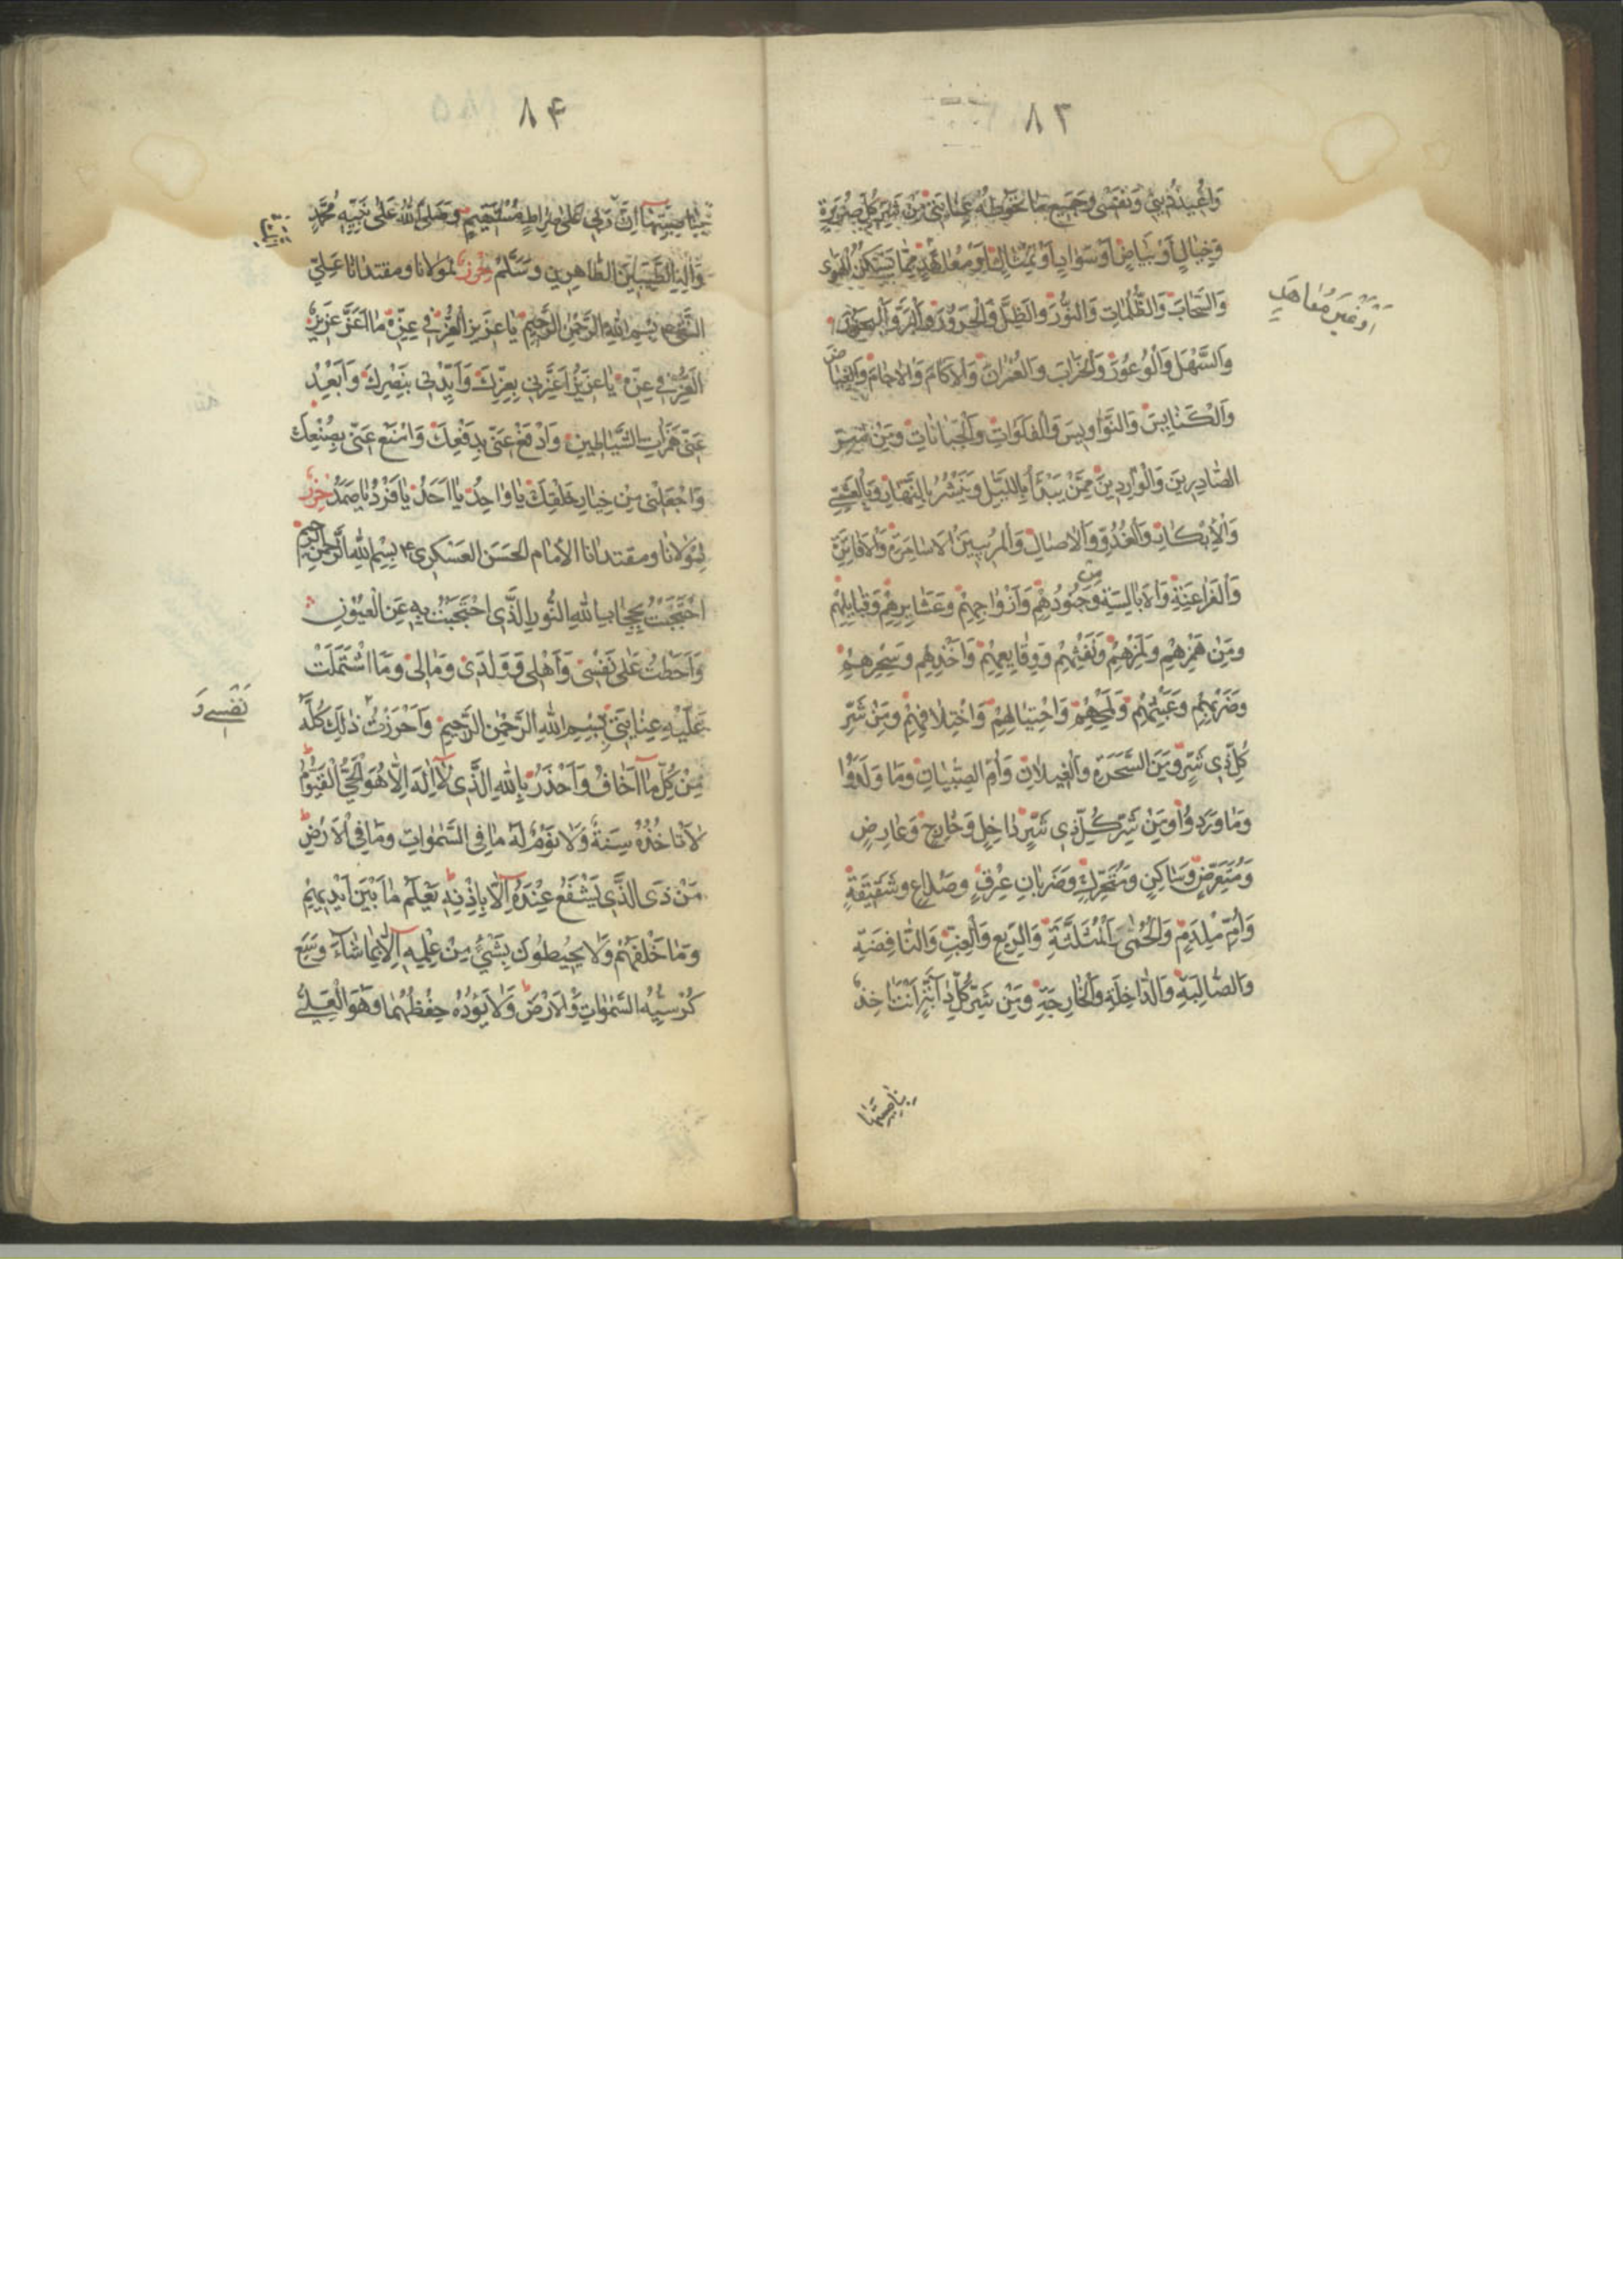 ٨٣
وَاُعِيذُ دِينِي وَنَفْسِي وَجَمِيعَ مَا تَحُوطُهُ عِنَايَتِي مِنْ شَرِّ كُلِّ صُورَةٍ
وَخَيَالٍ اَوْ بَيَاضٍ اَوْ سَوَادٍ اَوْ تِمْثَالٍ اَوْ مُعَاهَدٍ مِمَّا يَسْكُنُ الْهَوَى
اَوْ غَيْرِ مُعَاهَدٍ
وَالسَّحَابَ وَالظُّلُمَاتِ وَالنُّورَ وَالظِّلَّ وَالْحَرُورَ وَالْبَرَّ وَالْبُحُورَ
وَالسَّهْلَ وَالْوُعُورَ وَالْخَرَابَ وَالْعُمْرَانَ وَالْآكَامَ وَالْآجَامَ وَالْغِيَاضَ
وَالْكَنَايِسَ وَالنَّوَاوِيسَ وَالْفَلَوَاتِ وَالْجَبَّانَاتِ وَمِنْ شَرِّ
الصَّادِرِينَ وَالْوَارِدِينَ مِمَّنْ يَبْدَأُ بِاللَّيْلِ وَيَنْتَشِرُ بِالنَّهَارِ وَبِالْعَشِيِّ
وَالْاِبْكَارِ وَالْغُدُوِّ وَالْآصَالِ وَالْمُرِيبِينَ الْاَسَامِرَةِ وَالْاَفَاتِنَةِ
وَالْفَرَاعِنَةِ وَالْاَبَالِسَةِ وَمِنْ جُنُودِهِمْ وَاَزْوَاجِهِمْ وَعَشَايِرِهِمْ وَقَبَايِلِهِمْ
وَمِنْ هَمْزِهِمْ وَلَمْزِهِمْ وَنَفْثِهِمْ وَوِقَايِعِهِمْ وَاَخْذِهِمْ وَسِحْرِهِمْ
وَضَرْبِهِمْ وَعَبَثِهِمْ وَلَمْحِهِمْ وَاحْتِيَالِهِمْ وَاخْتِلَافِهِمْ وَمِنْ شَرِّ
كُلِّ ذِي شَرٍّ وَمِنَ السَّحَرَةِ وَالْغِيلَانِ وَاُمِّ الصِّبْيَانِ وَمَا وَلَدُوا
وَمَا وَرَدُوا وَمِنْ شَرِّ كُلِّ ذِي شَرٍّ دَاخِلٍ وَخَارِجٍ وَعَارِضٍ
وَمُتَعَرِّضٍ وَسَاكِنٍ وَمُتَحَرِّكٍ وَضَرَبَانِ عِرْقٍ وَصُدَاعٍ وَشَقِيقَةٍ
وَاُمِّ مِلْدَمٍ وَالْحُمَّى الْمُثَلَّثَةِ وَالرِّبْعِ وَالْغِبِّ وَالنَّافِضَةِ
وَالصَّالِبَةِ وَالدَّاخِلَةِ وَالْخَارِجَةِ وَمِنْ شَرِّ كُلِّ دَابَّةٍ اَنْتَ آخِذٌ
بِنَاصِيَتِهَا
٨۴
بِنَاصِيَتِهَا اِنَّ رَبِّي عَلَى صِرَاطٍ مُسْتَقِيمٍ وَصَلَّى اللهُ عَلَى نَبِيِّهِ مُحَمَّدٍ
وَآلِهِ الطَّيِّبِينَ الطَّاهِرِينَ وَسَلَّمَ حرز لمولانا ومقتدانا عَلِيّ
النَّقِي ع بِسْمِ اللهِ الرَّحْمٰنِ الرَّحِيمِ يَا عَزِيزَ الْعِزِّ فِي عِزِّهِ مَا اَعَزَّ عَزِيزَ
الْعِزِّ فِي عِزِّهِ يَا عَزِيزُ اَعِزَّنِي بِعِزِّكَ وَاَيِّدْنِي بِنَصْرِكَ وَاَبْعِدْ
عَنِّي هَمَزَاتِ الشَّيَاطِينِ وَادْفَعْ عَنِّي بِدَفْعِكَ وَامْنَعْ عَنِّي بِصُنْعِكَ
وَاجْعَلْنِي مِنْ خِيَارِ خَلْقِكَ يَا وَاحِدُ يَا اَحَدُ يَا فَرْدُ يَا صَمَدُ حرز
لمولانا ومقتدانا الامام الحَسَن العَسْكَرِي ع بِسْمِ اللهِ الرَّحْمٰنِ الرَّحِيمِ
احْتَجَبْتُ بِحِجَابِ اللهِ النُّورِ الَّذِي احْتَجَبْتَ بِهِ عَنِ الْعُيُونِ
وَاَحَطْتُ عَلَى نَفْسِي وَاَهْلِي وَوَلَدِي وَمَالِي وَمَا اشْتَمَلَتْ
عَلَيْهِ عِنَايَتِي بِبِسْمِ اللهِ الرَّحْمٰنِ الرَّحِيمِ وَاَحْرَزْتُ ذٰلِكَ كُلَّهُ
نَفْسِي وَ
مِنْ كُلِّ مَا اَخَافُ وَاَحْذَرُ بِاللهِ الَّذِي لَا اِلٰهَ اِلَّا هُوَ الْحَيُّ الْقَيُّومُ
لَا تَاْخُذُهُ سِنَةٌ وَلَا نَوْمٌ لَهُ مَا فِي السَّمٰوَاتِ وَمَا فِي الْاَرْضِ
مَنْ ذَى الَّذِي يَشْفَعُ عِنْدَهُ اِلَّا بِاِذْنِهِ يَعْلَمُ مَا بَيْنَ اَيْدِيهِمْ
وَمَا خَلْفَهُمْ وَلَا يُحِيطُونَ بِشَيْءٍ مِنْ عِلْمِهِ اِلَّا بِمَا شَاءَ وَسِعَ
كُرْسِيُّهُ السَّمٰوَاتِ وَالْاَرْضَ وَلَا يَؤُدُهُ حِفْظُهُمَا وَهُوَ الْعَلِيُّ